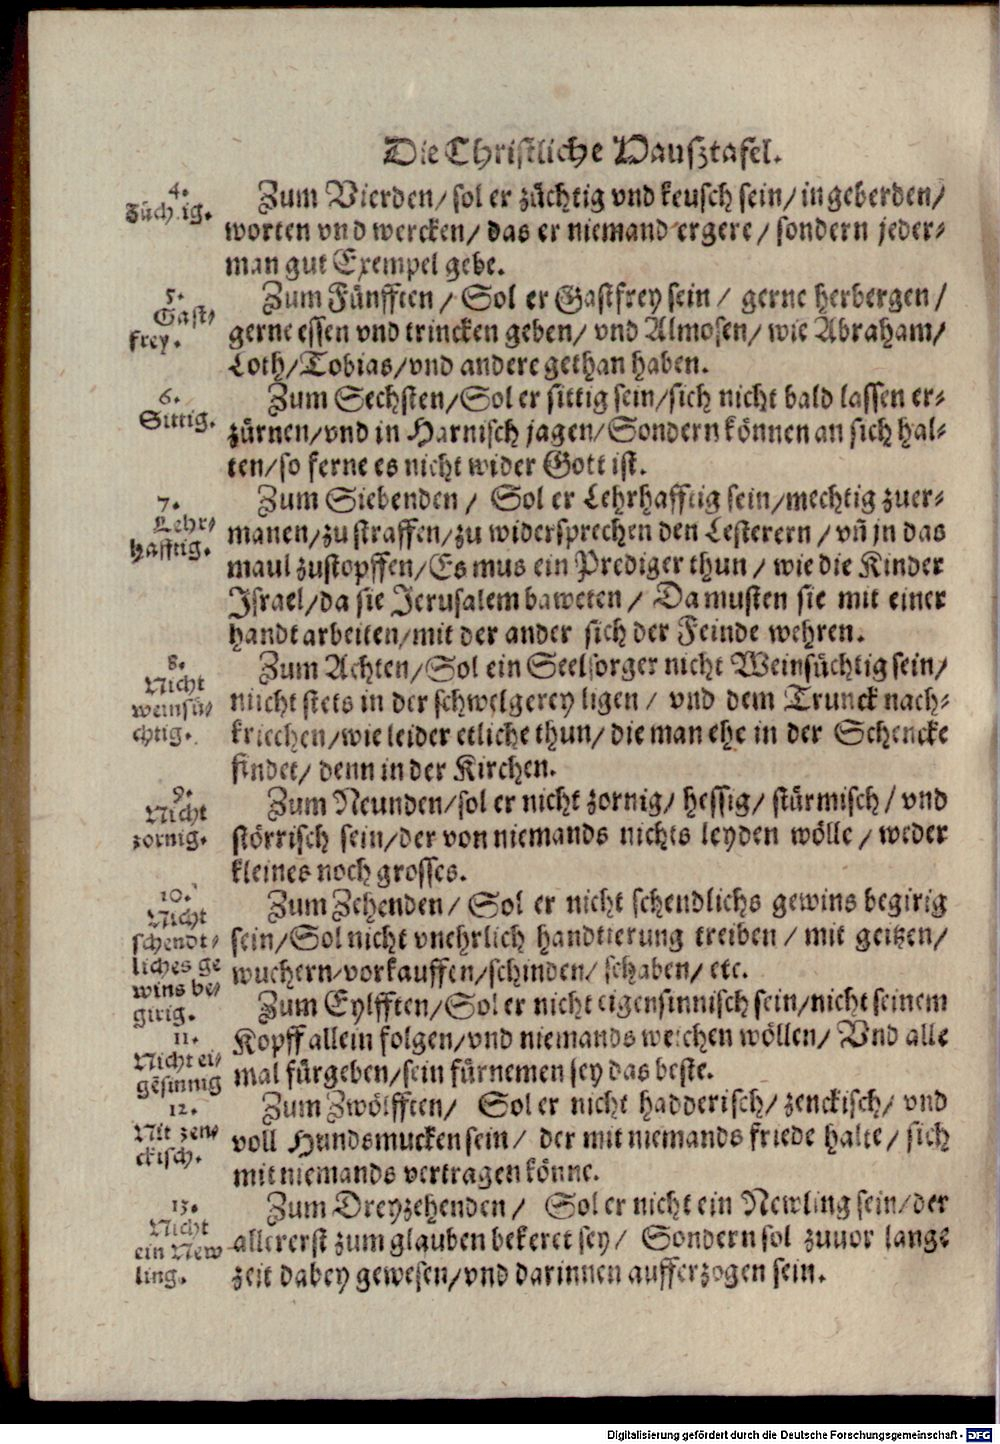 Die Christliche Hausztafel.
4.
Züchtig.
Zum Vierden/ sol er züchtig vnd keusch sein/ in geberden/
worten vnd wercken/ das er niemand ergere/ sondern jeder⸗
man gut Exempel gebe.
5.
Gast⸗
frey.
Zum Fünfften/ Sol er Gastfrey sein/ gerne herbergen/
gerne essen vnd trincken geben/ vnd Almosen/ wie Abraham/
Loth/ Tobias/ vnd andere gethan haben.
6.
Sittig.
Zum Sechsten/ Sol er sittig sein/ sich nicht bald lassen er⸗
zürnen/ vnd in Harnisch jagen/ Sondern können an sich hal⸗
ten/ so ferne es nicht wider Gott ist.
7.
Lehr⸗
hafftig.
Zum Siebenden/ Sol er Lehrhafftig sein/ mechtig zuer⸗
manen/ zu straffen/ zu widersprechen den Lesterern/ vñ jn das
maul zustopffen/ Es mus ein Prediger thun/ wie die Kinder
Israel/ da sie Jerusalem baweten/ Da musten sie mit einer
handt arbeiten/ mit der ander sich der Feinde wehren.
8.
Nicht
weinsü⸗
chtig.
Zum Achten/ Sol ein Seelsorger nicht Weinsüchtig sein/
niicht stets in der schwelgerey ligen/ vnd dem Trunck nach⸗
kriechen/ wie leider etliche thun/ die man ehe in der Schencke
findet/ denn in der Kirchen.
9.
Nicht
zornig.
Zum Neunden/ sol er nicht zornig/ hessig/ stürmisch/ vnd
störrisch sein/ der von niemands nichts leyden wölle/ weder
kleines noch grosses.
10.
Nicht
schendt⸗
liches ge
wins be⸗
girig.
Zum Zehenden/ Sol er nicht schendlichs gewins begirig
sein/ Sol nicht vnehrlich handtierung treiben/ mit geitzen/
wuchern/ vorkauffen/ schinden/ schaben/ etc.
11.
Nicht ei⸗
gēsinnig
Zum Eylfften/ Sol er nicht eigensinnisch sein/ nicht seinem
Kopff allein folgen/ vnd niemands weichen wöllen/ Vnd alle
mal fürgeben/ sein fürnemen sey das beste.
12.
Nit zen⸗
ckisch.
Zum Zwölfften/ Sol er nicht hadderisch/ zenckisch/ vnd
voll Hundsmucken sein/ der mit niemands friede halte/ sich
mit niemands vertragen könne.
13.
Nicht
ein New
ling.
Zum Dreyzehenden/ Sol er nicht ein Newling sein/ der
allererst zum glauben bekeret sey/ Sondern sol zuuor lange
zeit dabey gewesen/ vnd darinnen aufferzogen sein.
Digitalisierung gefördert durch die Deutsche Forschungsgemeinschaft - DFG